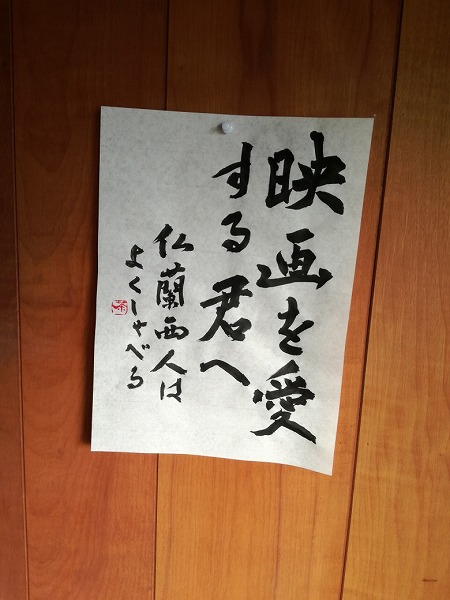 映画を愛
する君へ
仏蘭西人は
よくしゃべる